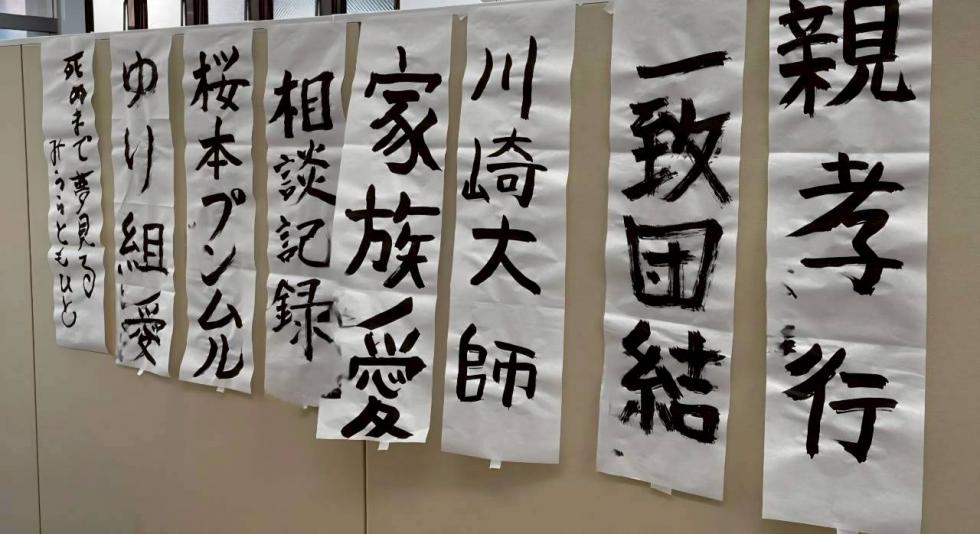 親孝行
一致団結
川崎大師
家族愛
相談記録
桜本プンムル
ゆり組愛
死ぬまで夢見る
みうらともひと